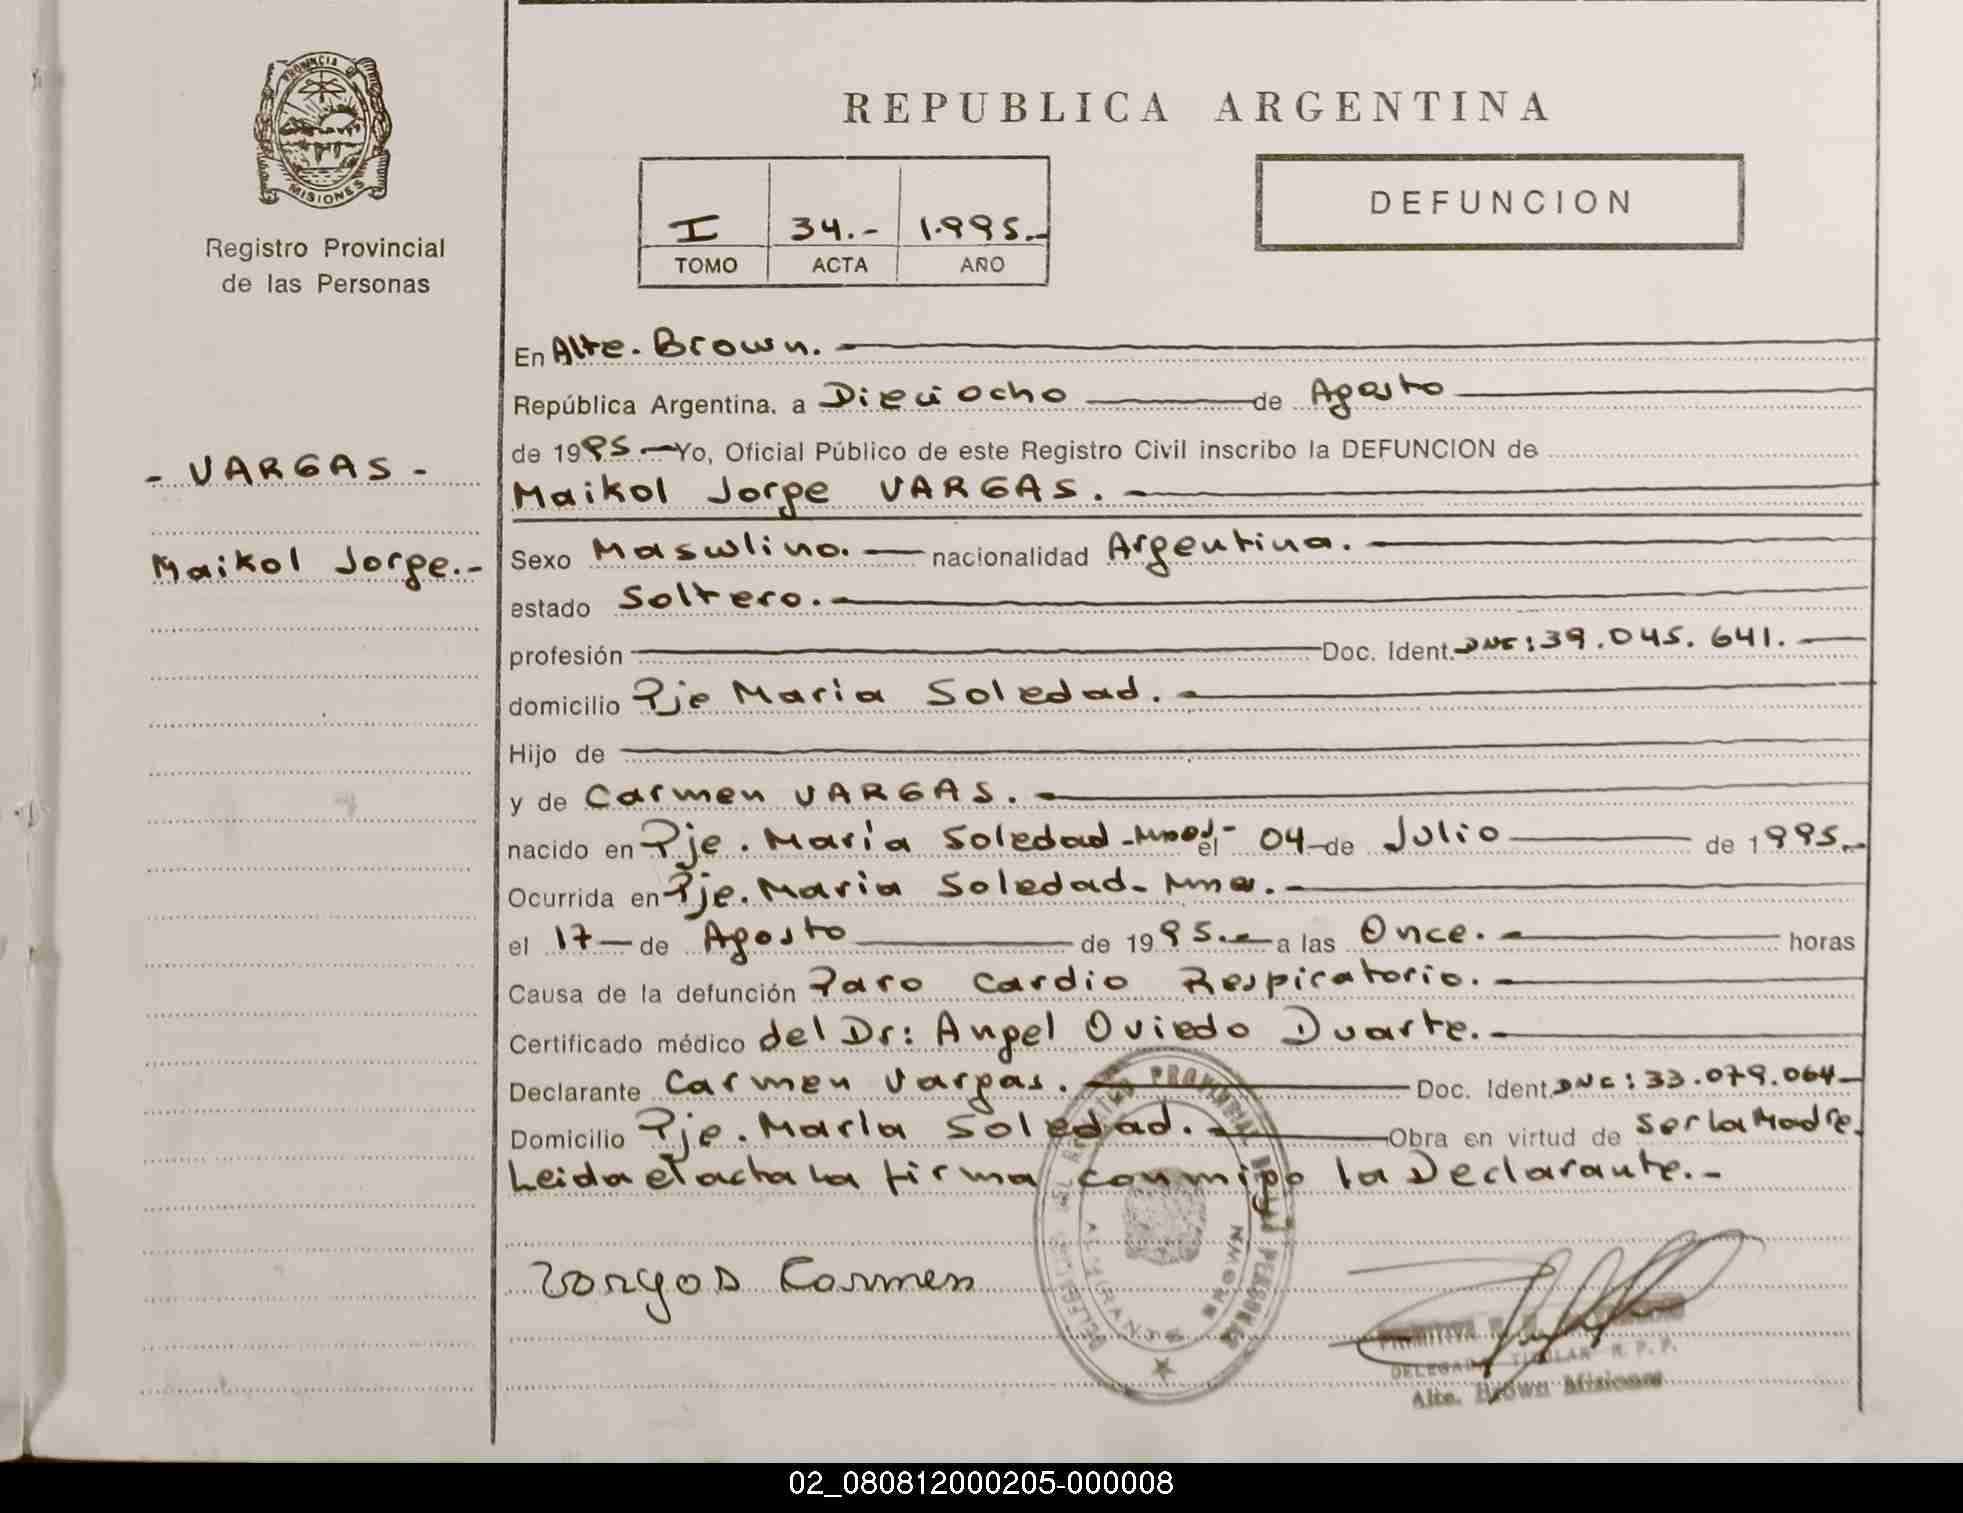 PROVINCIA DE
MISIONES
Registro Provincial
de las Personas
- VARGAS -
Maikol Jorge.-
REPUBLICA ARGENTINA
I 34.- 1.995.-
TOMO ACTA AÑO
DEFUNCION
En Alte. Brown.
República Argentina, a Dieciocho de Agosto
de 1995 Yo, Oficial Público de este Registro Civil inscribo la DEFUNCION de
Maikol Jorge VARGAS.
Sexo Masculino. nacionalidad Argentina.
estado Soltero.
profesión Doc. Ident. DNI: 39.045.641.
domicilio Pje Maria Soledad.
Hijo de
y de Carmen VARGAS.
nacido en Pje. María Soledad - Mnes- el 04 de Julio de 1995.-
Ocurrida en Pje. Maria Soledad - Mnes.
el 17 de Agosto de 1995.- a las Once. horas
Causa de la defunción Paro Cardio Respiratorio.
Certificado médico del Dr: Angel Oviedo Duarte.
Declarante Carmen Vargas. Doc. Ident. DNI: 33.079.064
Domicilio Pje. Maria Soledad. Obra en virtud de ser la Madre.
Leida el acta la firma conmigo la Declarante.-
Vargas Carmen
DELEGACION DEL REGISTRO PROVINCIAL DE LAS PERSONAS
ALMIRANTE BROWN
DELEGADO TITULAR R. P. P.
Alte. Brown Misiones
02_080812000205-000008